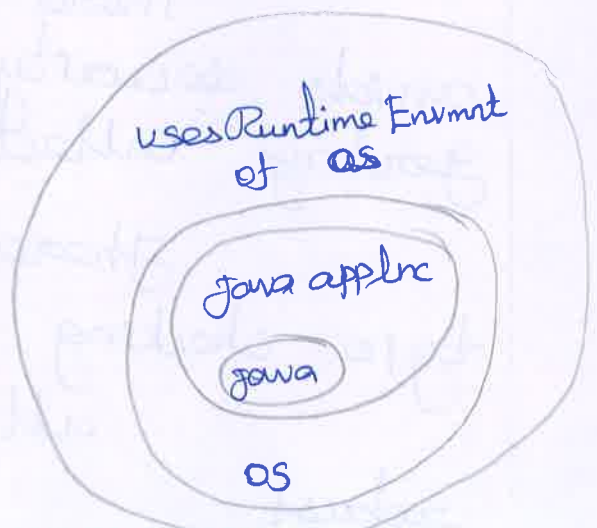 uses Runtime Envmnt
of OS
Java applnc
java
OS